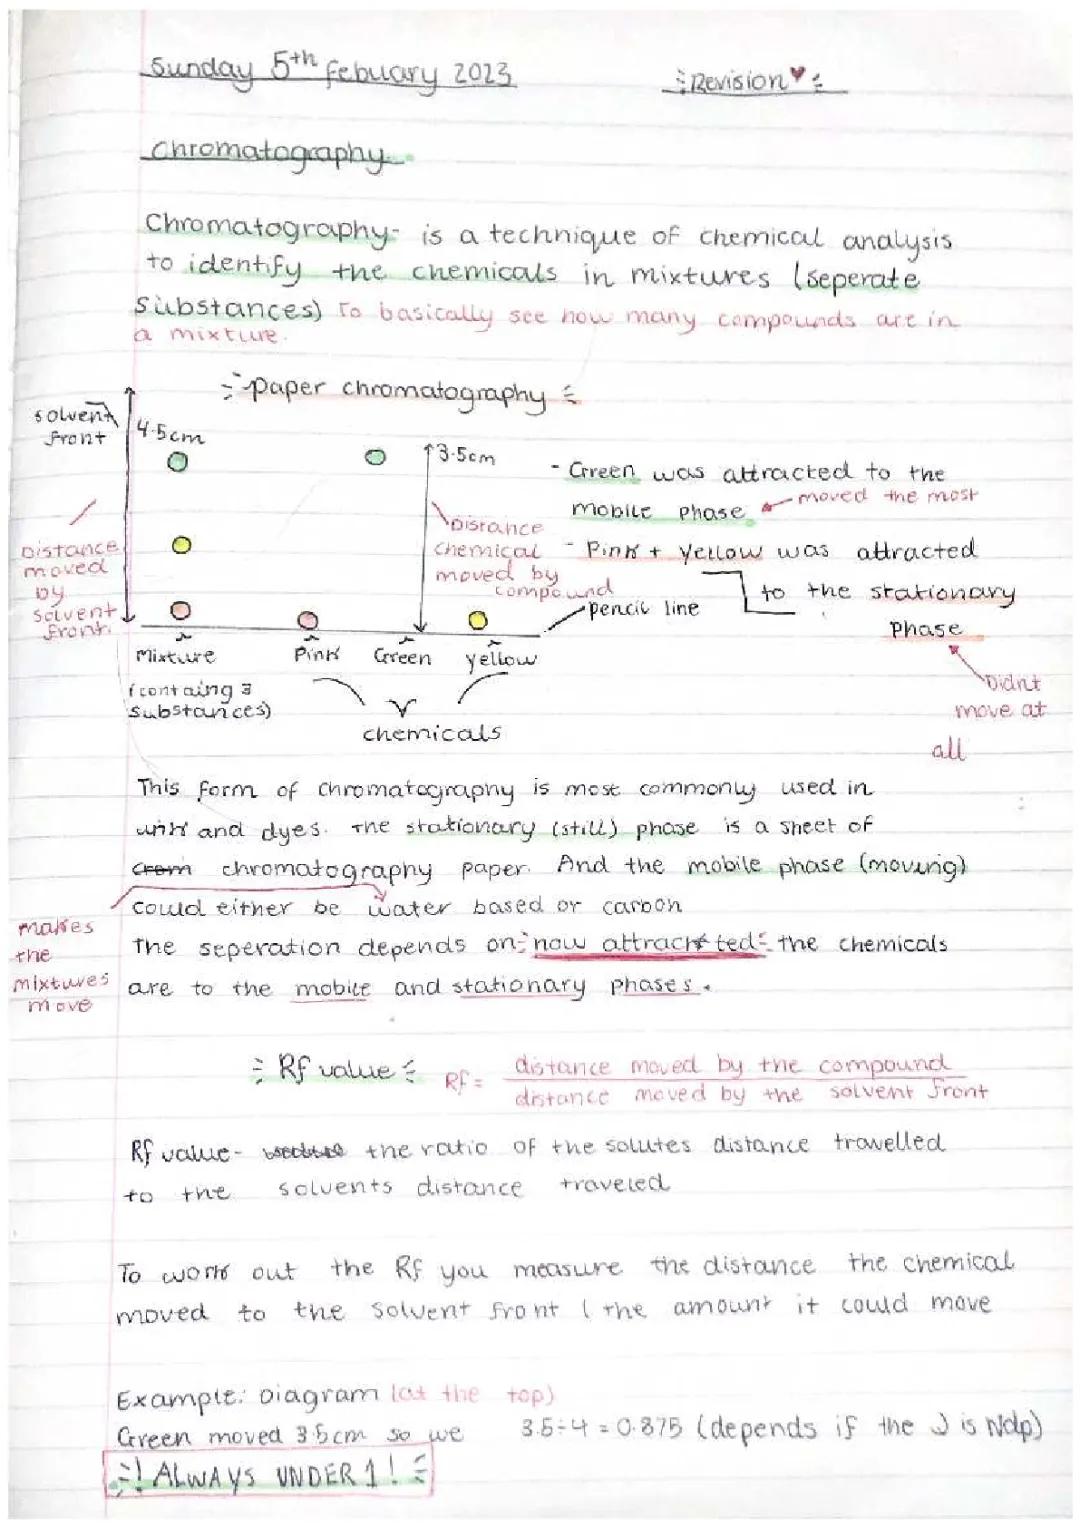 Sunday 5th febuary 2023
Revision
Chromatography
Chromatography- is a technique of chemical analysis
to identify the chemicals in mixtures (seperate
Substances) To basically see how many compounds are in
a mixture.
paper chromatography
solvent
front
4.5cm
3.5cm
- Green was attracted to the
mobile phase
moved the most
Distance
moved
by
solvent
front.
Distance
chemical
moved by
compound
- Pink + yellow was attracted
to the stationary
phase
pencil line
Didnt
move at
all
Mixture
Pink
Green
yellow
(containg 3
substances)
chemicals
This form of chromatography is most commonly used in
and dyes. The stationary (still) phase is a sheet of
crom chromatography paper. And the mobile phase (moving)
could either be water based or carbon
makes
the
mixtures
move
The seperation depends on how attracted the chemicals
are to the mobile and stationary phases.
Rf value
Rf = distance moved by the compound
distance moved by the solvent front
Rf value- the ratio of the solutes distance travelled
to the solvents distance traveled
To work out the Rf you measure the distance the chemical
moved to the solvent front (the amount it could move
Example: Diagram (at the top)
Green moved 3.5cm so we 3.5÷4 = 0.875 (depends if the is Ndp)
! ALWAYS UNDER 1 !